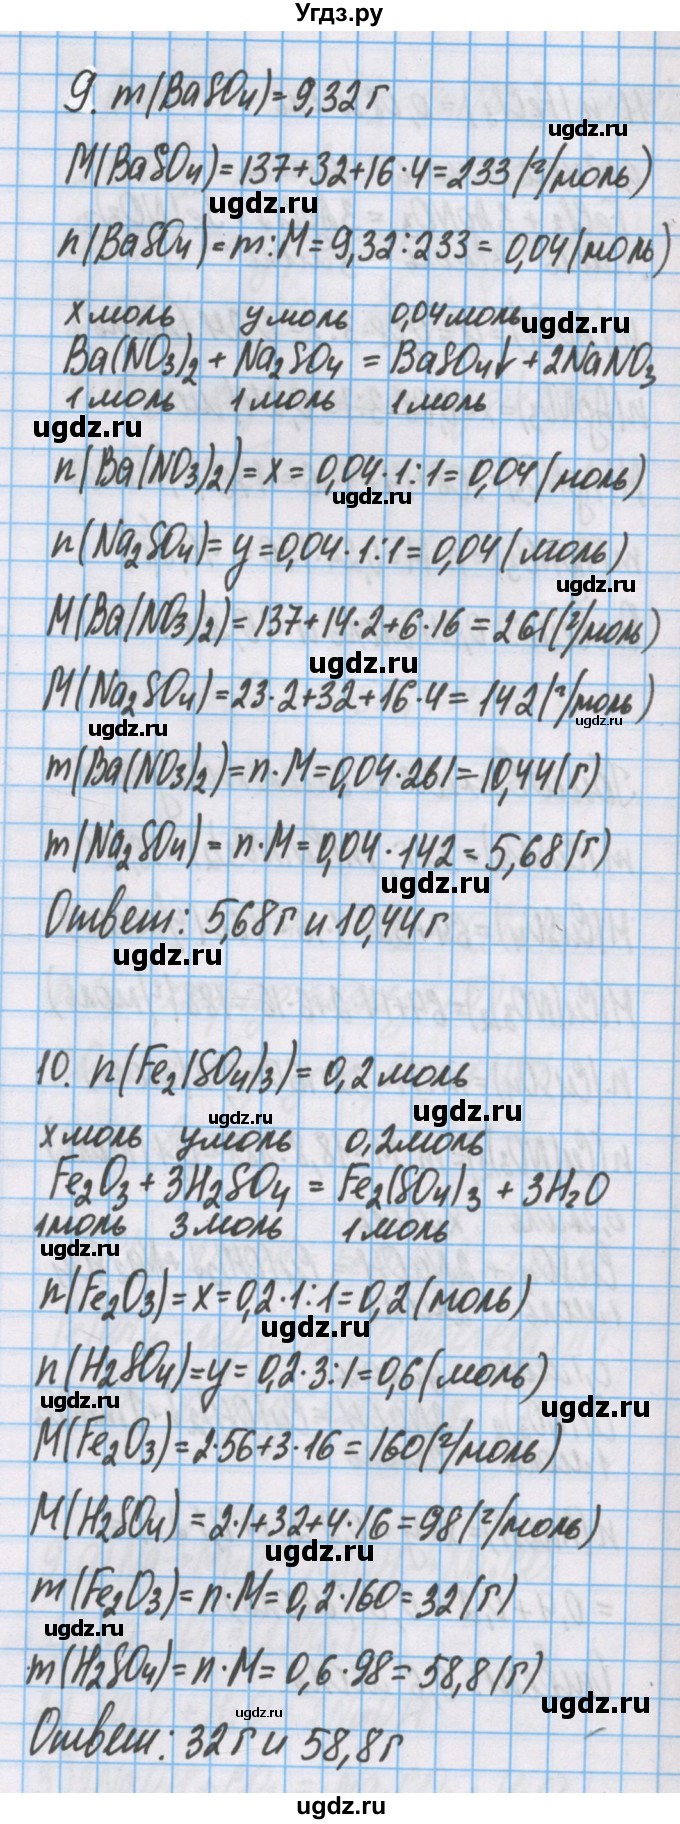 Угдз.ру
9. m(BaSO4)=9,32г
ugdz.ru
M(BaSO4)=137+32+16·4=233(г/моль)
ugdz.ru
n(BaSO4)=m:M=9,32:233= 0,04(моль)
x моль y моль 0,04моль
ugdz.ru
Ba(NO3)2 + Na2SO4 = BaSO4↓ + 2NaNO3
1 моль 1 моль 1 моль
ugdz.ru
n(Ba(NO3)2)=x= 0,04·1:1=0,04(моль)
ugdz.ru
n(Na2SO4)=y=0,04·1:1=0,04(моль)
ugdz.ru
M(Ba(NO3)2)=137+14·2+6·16=261(г/моль)
ugdz.ru
M(Na2SO4)=23·2+32+16·4=142(г/моль)
ugdz.ru
ugdz.ru
m(Ba(NO3)2)=n·M=0,04·261=10,44(г)
m(Na2SO4)=n·M=0,04·142=5,68(г)
ugdz.ru
Ответ: 5,68г и 10,44г
ugdz.ru
10. n(Fe2(SO4)3)=0,2моль
ugdz.ru
ugdz.ru
x моль y моль 0,2моль
Fe2O3 + 3H2SO4 = Fe2(SO4)3 + 3H2O
1моль 3 моль 1 моль
ugdz.ru
n(Fe2O3)=x=0,2·1:1=0,2(моль)
ugdz.ru
n(H2SO4)=y=0,2·3:1=0,6(моль)
ugdz.ru
ugdz.ru
M(Fe2O3)=2·56+3·16=160(г/моль)
M(H2SO4)=2·1+32+4·16=98(г/моль)
ugdz.ru
m(Fe2O3)=n·M=0,2·160=32(г)
ugdz.ru
m(H2SO4)=n·M=0,6·98=58,8(г)
ugdz.ru
ugdz.ru
Ответ: 32г и 58,8г
ugdz.ru